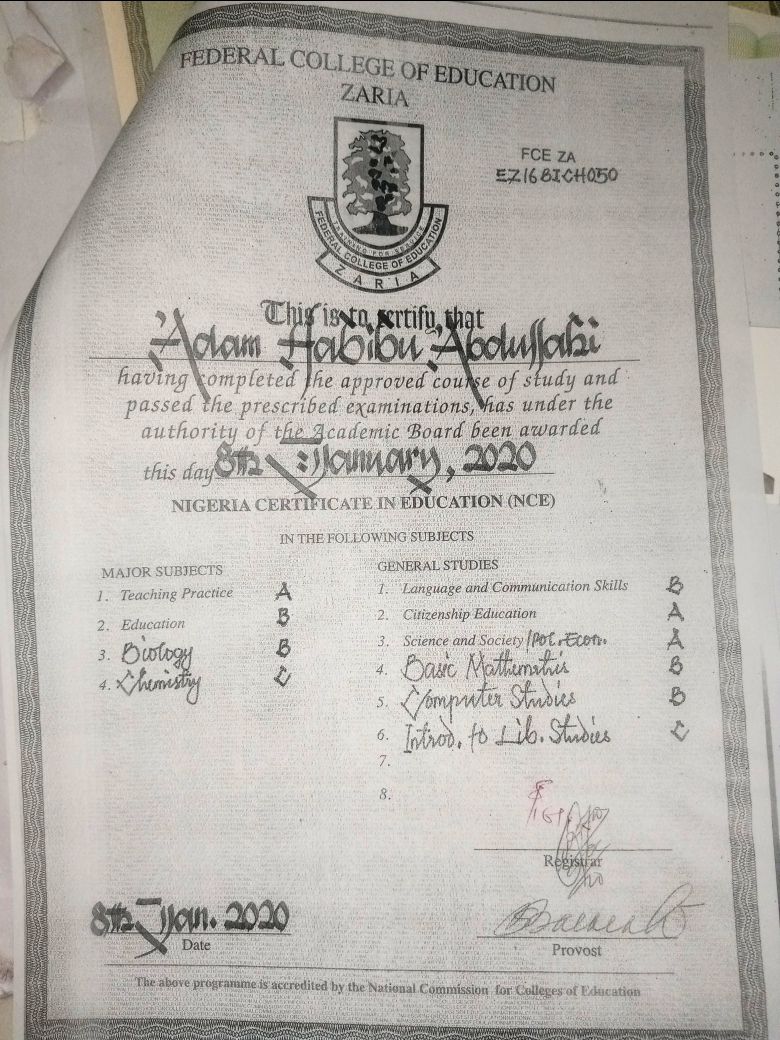 FEDERAL COLLEGE OF EDUCATION
ZARIA
FCE ZA
EZ16BICH050
TRAINING FOR SERVICE
FEDERAL COLLEGE OF EDUCATION
ZARIA
This is to certify that
Adam Habibu Abdullahi
having completed the approved course of study and
passed the prescribed examinations, has under the
authority of the Academic Board been awarded
this day 8th January, 2020
NIGERIA CERTIFICATE IN EDUCATION (NCE)
IN THE FOLLOWING SUBJECTS
MAJOR SUBJECTS
1. Teaching Practice A
2. Education B
3. Biology B
4. Chemistry C
GENERAL STUDIES
1. Language and Communication Skills B
2. Citizenship Education A
3. Science and Society/Pol. Econ. A
4. Basic Mathematics B
5. Computer Studies B
6. Introd. to Lib. Studies C
7.
8.
Registrar
8th Jan. 2020
Date
Provost
The above programme is accredited by the National Commission for Colleges of Education